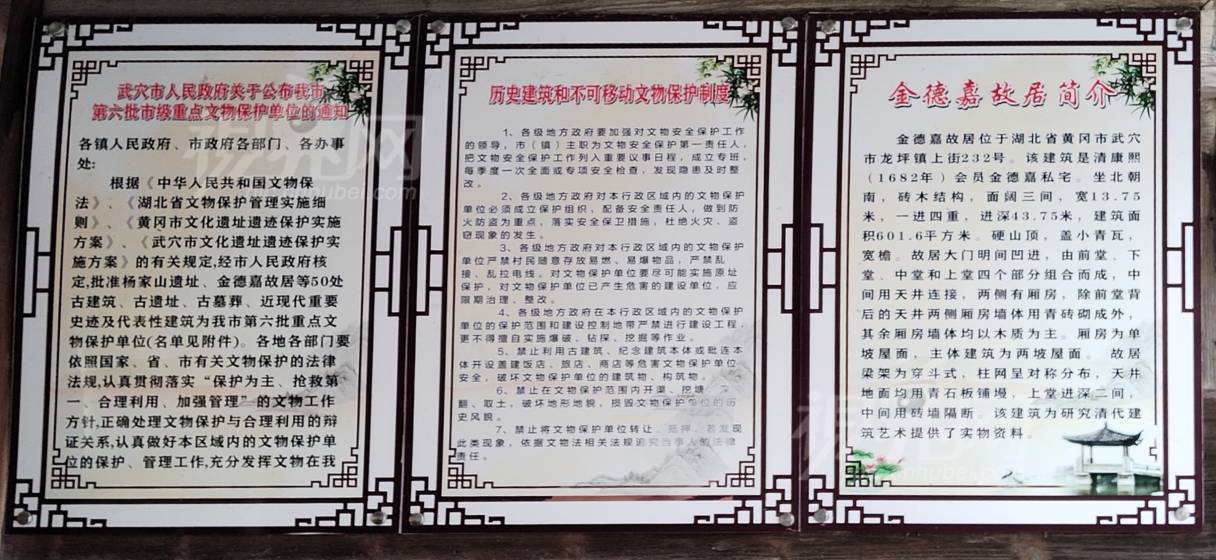 武穴市人民政府关于公布我市
第六批市级重点文物保护单位的通知
各镇人民政府、市政府各部门、各办事
处:
根据《中华人民共和国文物保
法》、《湖北省文物保护管理实施细
则》、《黄冈市文化遗址遗迹保护实施
方案》、《武穴市文化遗址遗迹保护实
施方案》的有关规定,经市人民政府核
定,批准杨家山遗址、金德嘉故居等50处
古建筑、古遗址、古墓葬、近现代重要
史迹及代表性建筑为我市第六批重点文
物保护单位(名单见附件)。各地各部门要
依照国家、省、市有关文物保护的法律
法规,认真贯彻落实“保护为主、抢救第
一、合理利用、加强管理”的文物工作
方针,正确处理文物保护与合理利用的辩
证关系,认真做好本区域内的文物保护单
位的保护、管理工作,充分发挥文物在我
历史建筑和不可移动文物保护制度
1、各级地方政府要加强对文物安全保护工作
的领导,市(镇)主职为文物安全保护第一责任人,
把文物安全保护工作列入重要议事日程,成立专班,
每季度一次全面或专项安全检查,发现隐患及时整
改。
2、各级地方政府对本行政区域内的文物保护
单位必须成立保护组织,配备安全责任人,做到防
火防盗为重点,落实安全保卫措施,杜绝火灾、盗
窃现象的发生。
3、各级地方政府对本行政区域内的文物保护
单位严禁村民随意存放易燃、易爆物品,严禁乱
接、乱拉电线。对文物保护单位要尽可能实施原址
保护,对文物保护单位已产生危害的建设单位,应
限期治理、整改。
4、各级地方政府在本行政区域内的文物保护
单位的保护范围和建设控制地带严禁进行建设工程,
更不得擅自实施爆破、钻探、挖掘等作业。
5、禁止利用古建筑、纪念建筑本体或毗连本
体开设盖建饭店、旅店、商店等危害文物保护单位
安全,破坏文物保护单位的建筑物、构筑物。
6、禁止在文物保护范围内开渠、挖塘、深
翻、取土,破坏地形地貌,损毁文物保护单位的历
史风貌。
7、禁止将文物保护单位转让、抵押,若发现
此类现象,依据文物法相关法规追究当事人的法律
责任。
金德嘉故居简介
金德嘉故居位于湖北省黄冈市武穴
市龙坪镇上街232号。该建筑是清康熙
(1682年)会员金德嘉私宅。坐北朝
南,砖木结构,面阔三间,宽13.75
米,一进四重,进深43.75米,建筑面
积601.6平方米。硬山顶,盖小青瓦,
宽檐。故居大门明间凹进,由前堂、下
堂、中堂和上堂四个部分组合而成,中
间用天井连接,两侧有厢房,除前堂背
后的天井两侧厢房墙体用青砖砌成外,
其余厢房墙体均以木质为主。厢房为单
坡屋面,主体建筑为两坡屋面。故居
梁架为穿斗式,柱网呈对称分布,天井
地面均用青石板铺墁,上堂进深二间,
中间用砖墙隔断。该建筑为研究清代建
筑艺术提供了实物资料。